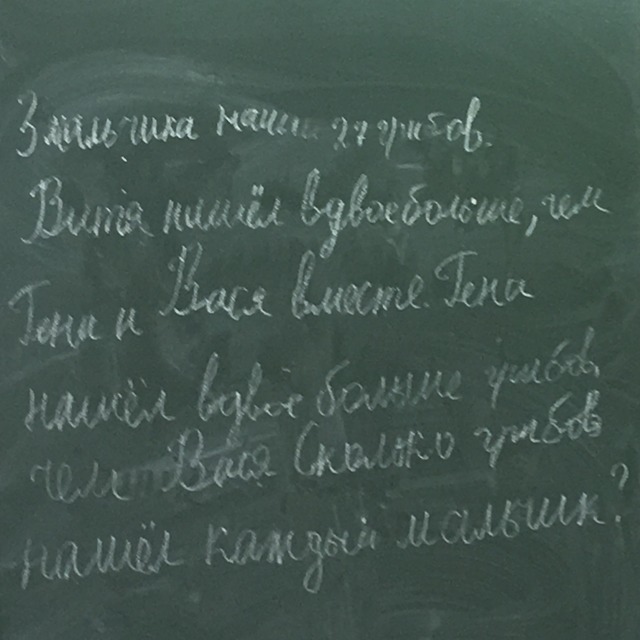 3 мальчика нашли 27 грибов.
Витя нашёл вдвое больше, чем
Гена и Вася вместе. Гена
нашёл вдвое больше грибов,
чем Вася Сколько грибов
нашёл каждый мальчик?